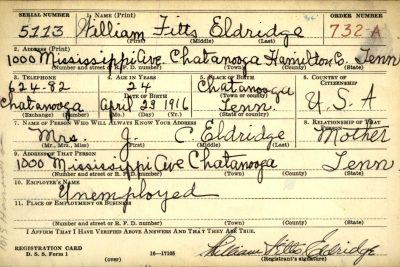 SERIAL NUMBER 1. NAME (Print) ORDER NUMBER
5113 William Fitts Eldridge 732-A
(First) (Middle) (Last)
2. ADDRESS (Print)
1000 Mississippi Ave. Chatanooga Hamilton Co. Tenn
(Number and street or R. F. D. number) (Town) (County) (State)
3. TELEPHONE 4. AGE IN YEARS 5. PLACE OF BIRTH 6. COUNTRY OF CITIZENSHIP
624-82 24 Chatanooga
DATE OF BIRTH (Town or county)
Chatanooga April 23 1916 Tenn. U.S.A
(Exchange) (Mo.) (Day) (Yr.) (State or country)
7. NAME OF PERSON WHO WILL ALWAYS KNOW YOUR ADDRESS 8. RELATIONSHIP OF THAT PERSON
Mrs. J. C. Eldridge Mother
(Mr., Mrs., Miss) (First) (Middle) (Last)
9. ADDRESS OF THAT PERSON
1000 Mississippi Ave Chatanooga Tenn
(Number and street or R. F. D. number) (Town) (County) (State)
10. EMPLOYER'S NAME
Unemployed
11. PLACE OF EMPLOYMENT OR BUSINESS
(Number and street or R. F. D. number) (Town) (County) (State)
I AFFIRM THAT I HAVE VERIFIED ABOVE ANSWERS AND THAT THEY ARE TRUE.
REGISTRATION CARD William Fitts Eldridge
D. S. S. Form 1 (over) 16—17105 (Registrant's signature)